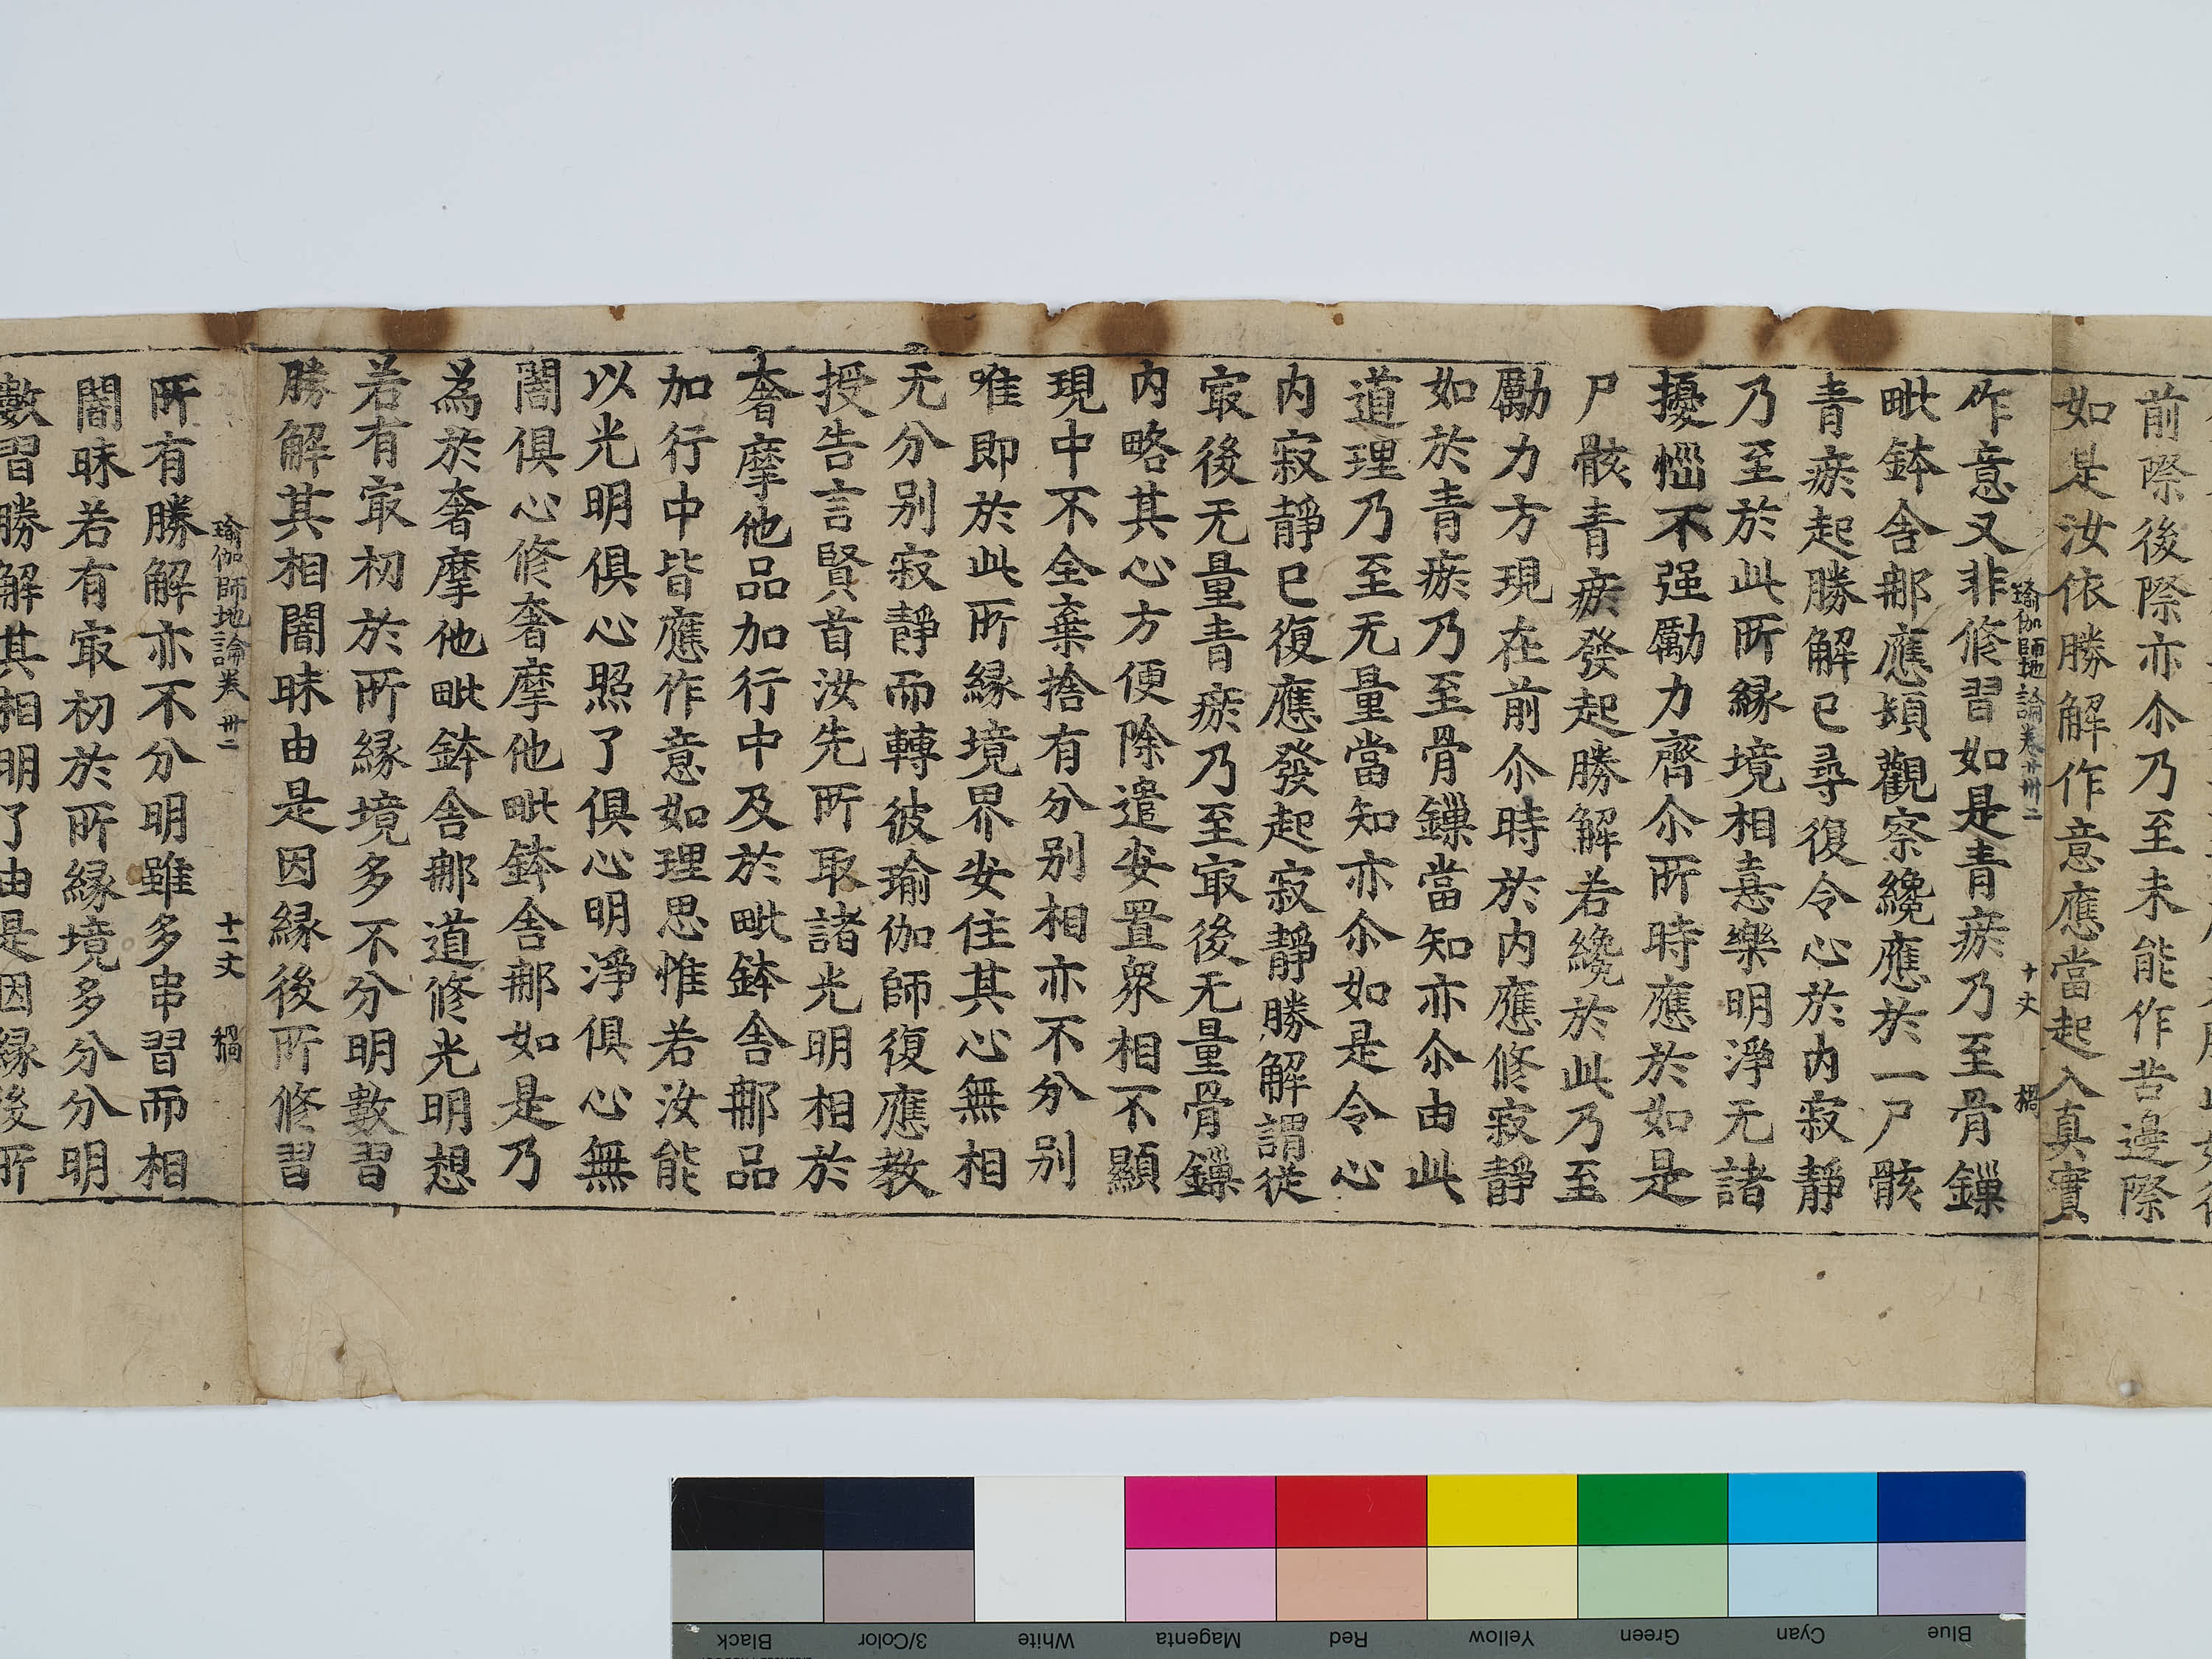 前際後際亦尒乃至未能作苦邊際
如是汝依勝解作意應當起入真實
瑜伽師地論卷卅二 十丈 稱
作意又非修習如是青瘀乃至骨鏁
毗鉢舍那應頻觀察纔應於一尸骸
青瘀起勝解已尋復令心於內寂靜
乃至於此所縁境相憙樂明淨无諸
擾惱不强勵力齊尒所時應於如是
尸骸青瘀發起勝解若纔於此乃至
勵力方現在前尒時於內應修寂靜
如於青瘀乃至骨鏁當知亦尒由此
道理乃至无量當知亦尒如是令心
內寂靜已復應發起寂靜勝解謂從
㝡後无量青瘀乃至㝡後无量骨鏁
內略其心方便除遣安置衆相不顯
現中不全棄捨有分别相亦不分别
唯即於此所縁境界安住其心無相
无分别寂靜而轉彼瑜伽師復應教
授告言賢首汝先所取諸光明相於
奢摩他品加行中及於毗鉢舍那品
加行中皆應作意如理思惟若汝能
以光明俱心照了俱心明淨俱心無
闇俱心修奢摩他毗鉢舍那如是乃
為於奢摩他毗鉢舍那道修光明想
若有㝡初於所縁境多不分明數習
勝解其相闇昧由是因縁後所修習
瑜伽師地論卷卅二 十一丈 稱
所有勝解亦不分明雖多串習而相
闇昧若有㝡初於所縁境多分分明
數習勝解其相明了由是因縁後所